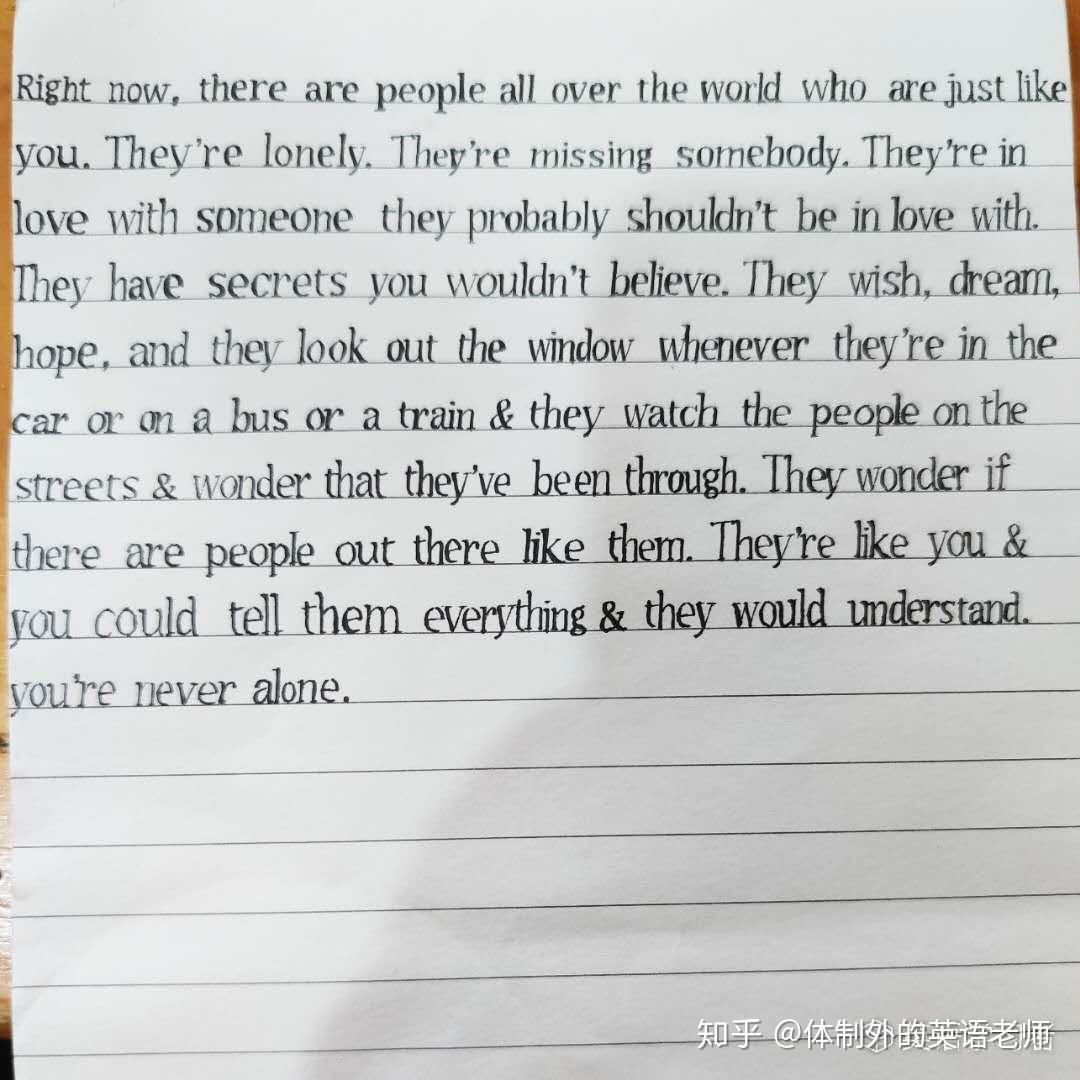 Right now, there are people all over the world who are just like
you. They're lonely. They're missing somebody. They're in
love with someone they probably shouldn't be in love with.
They have secrets you wouldn't believe. They wish, dream,
hope, and they look out the window whenever they're in the
car or on a bus or a train & they watch the people on the
streets & wonder that they've been through. They wonder if
there are people out there like them. They're like you &
you could tell them everything & they would understand.
you're never alone.
知乎 @体制外的英语老师